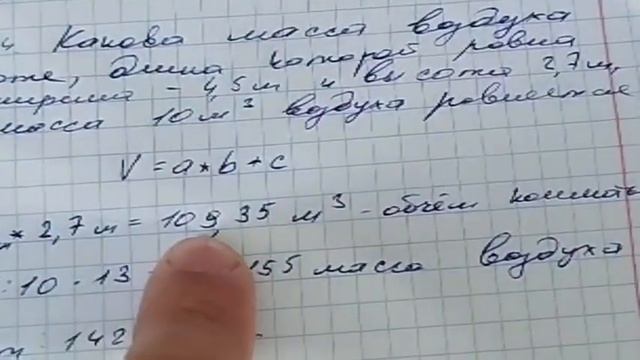 Какова масса воздуха
длина которой равна
4,5 м и высота 2,7 м,
масса 10 м³ воздуха равняется
V = a * b * c
* 2,7 м = 109,35 м³ - объём комнаты
: 10 · 13 155 масса воздуха
: 142